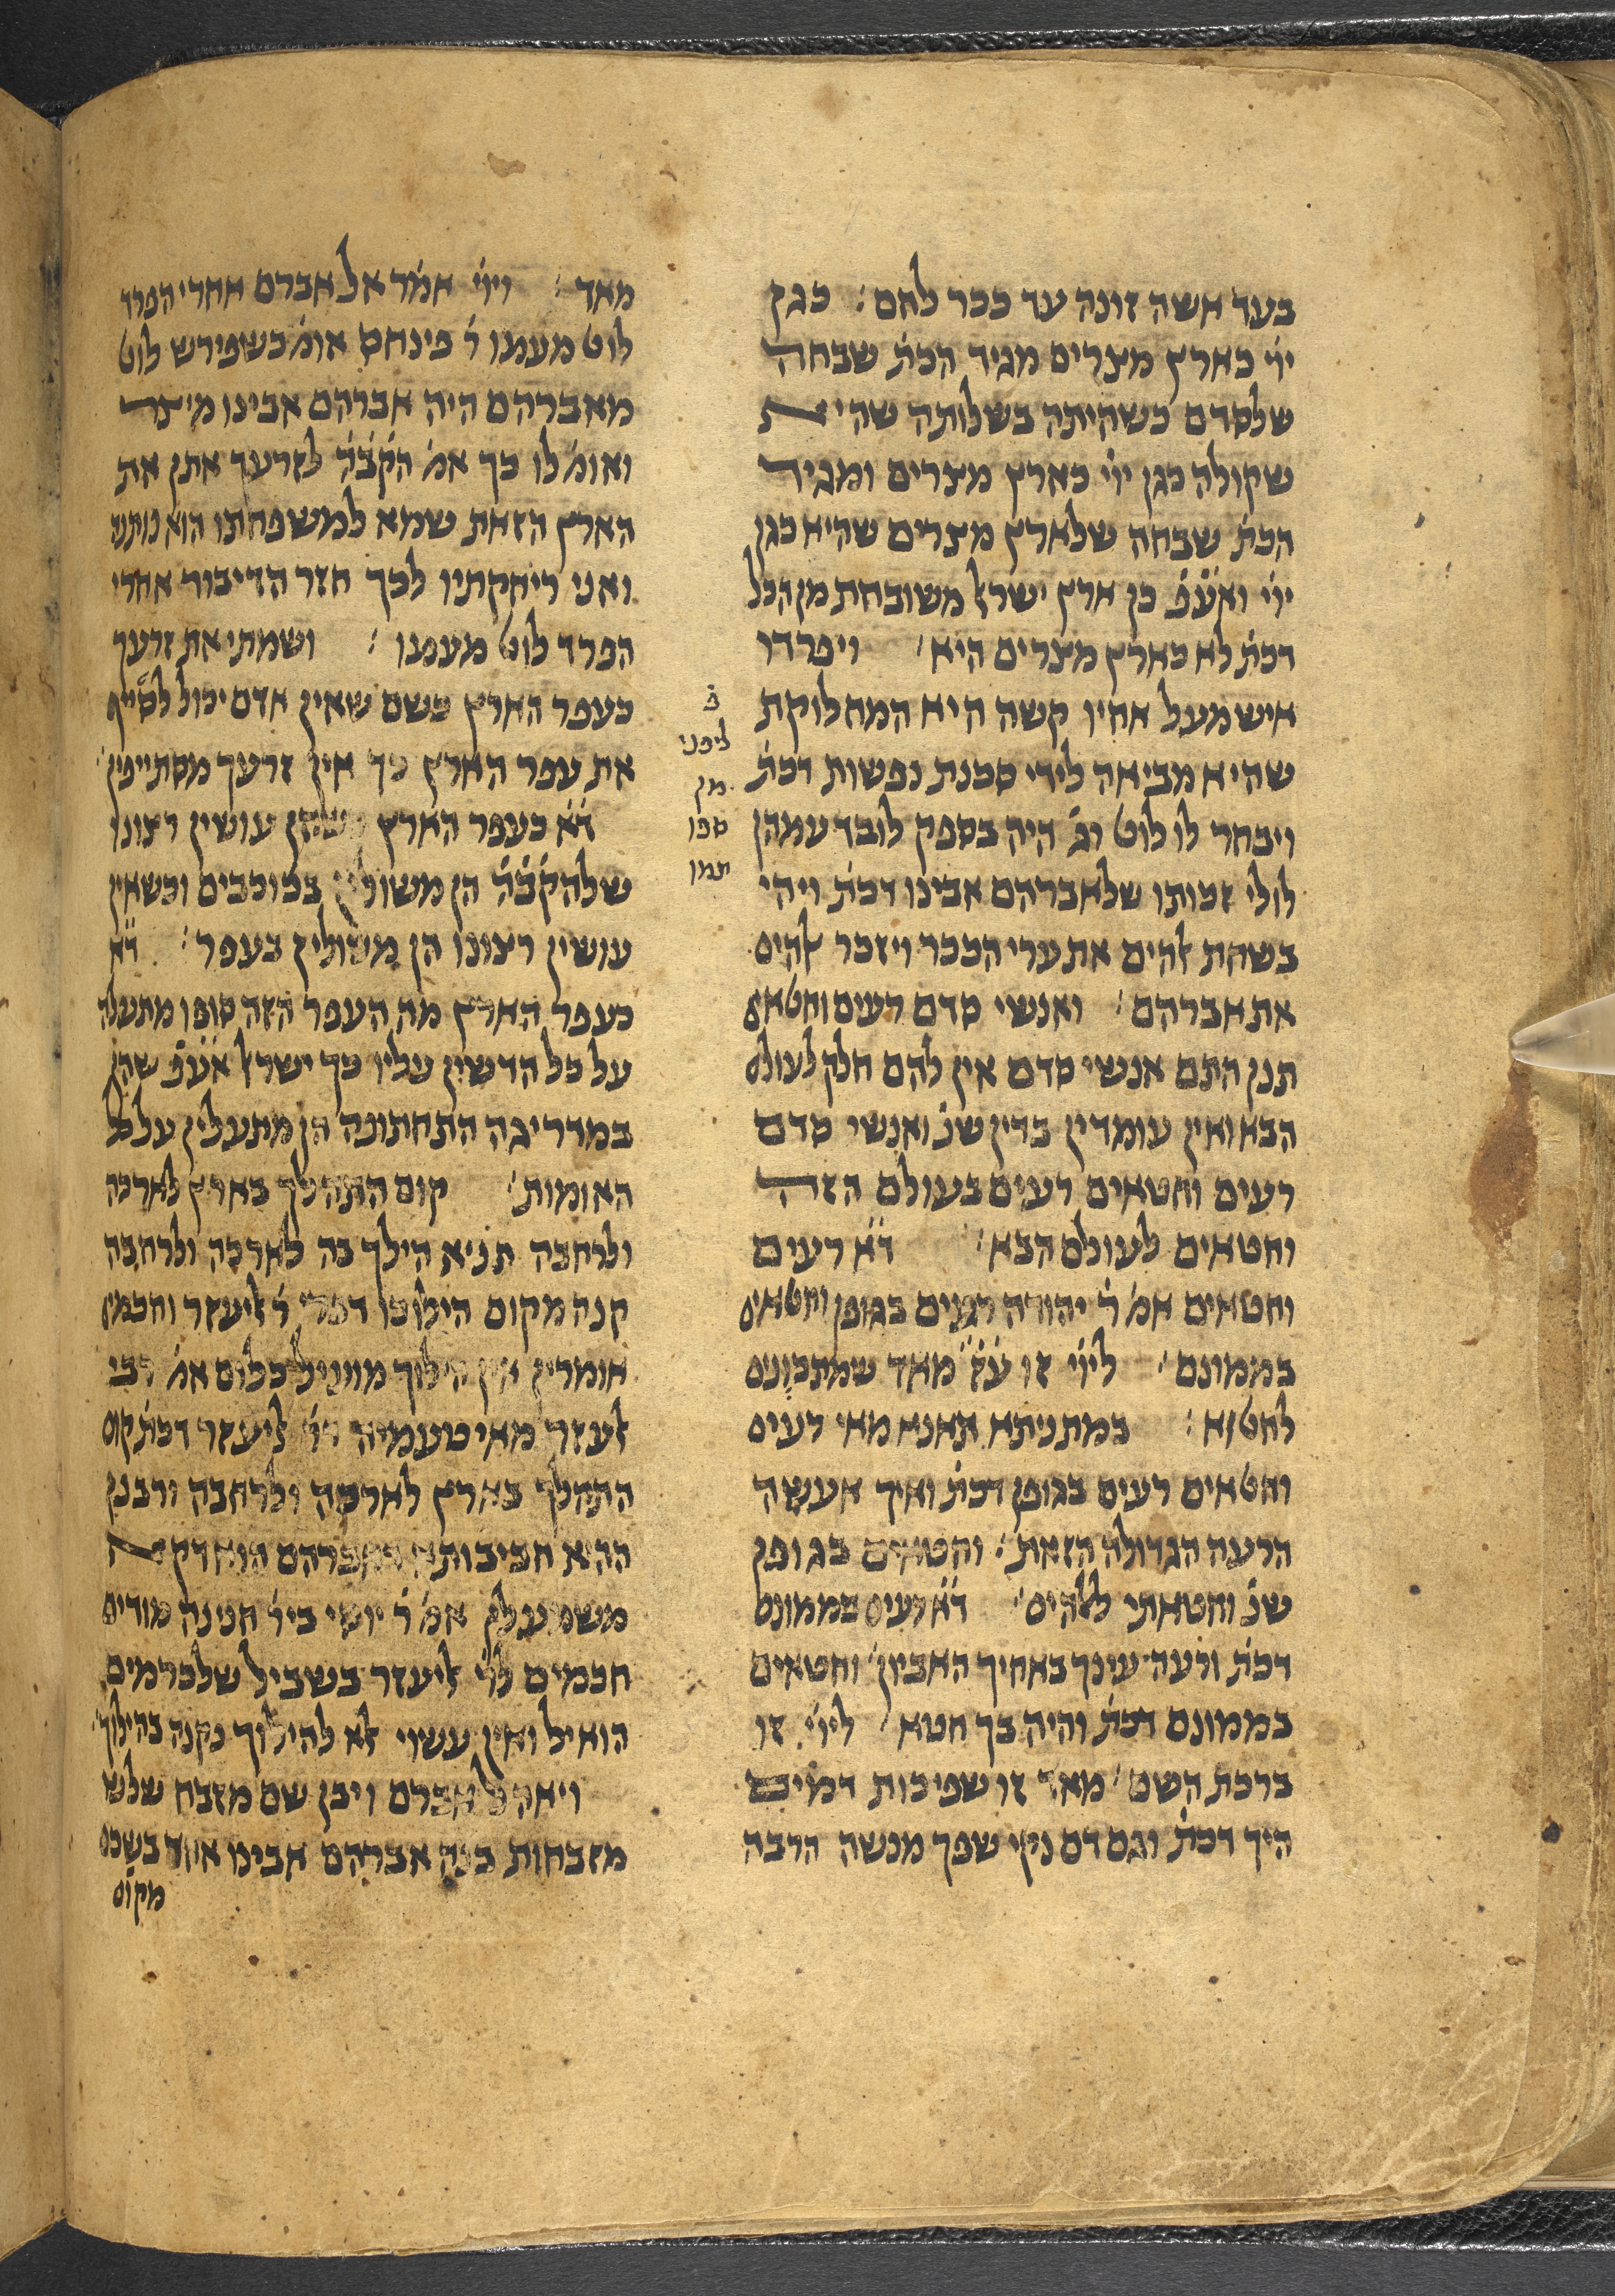 בעד אשה זונה עד ככר לחם׃ כגן
ייי כארץ מצרים מגיד הכת׳ שבחה
שלסדם כשהיתה בשלותה שהית
שקולה כגן ייי כארץ מצרים ומגיד
הכת׳ שבחה שלארץ מצרים שהיא כגן
ייי ואע׳פ׳ כן ארץ ישראל משובחת מן הכל
דכת׳ לא כארץ מצרים היא׳ ויפרדו
איש מעל אחיו קשה היא המחלוקת
שהיא מביאה לידי סכנת נפשות דכת׳
ויבחר לו לוט וג׳ היה בספק לובד עמהן
לולי זכותו שלאברהם אבינו דכת׳ ויהי
בשחת אלהים את ערי הככר ויזכר אלהים
את אברהם׳ ואנשי סדם רעים וחטאים
תנן התם אנשי סדם אין להם חלק לעולם
הבא ואין עומדין בדין שנ׳ ואנשי סדם
רעים וחטאים רעים בעולם הזה
וחטאים לעולם הבא׳ ד׳א׳ רעים
וחטאים אמ׳ ר׳ יהודה רעים בגופן וחטאים
בממונם׳ לייי זו ע׳ז׳ מאד שמתכונים
לחטוא׳ במתניתא תאנא מאי רעים
וחטאים רעים בגופן דכת׳ ואיך אעשה
הרעה הגדולה הזאת׳ וחטאים בגופן
שנ׳ וחטאתי לאלהים׳ ד׳א׳ רעים בממונם
דכת׳ ורעה עינך באחיך האביון׳ וחטאים
בממונם דכת׳ והיה בך חטא׳ לייי זו
ברכת השם׳ מאד זו שפיכות דמים
היך דכת׳ וגם דם נקי שפך מנשה הרבה
פ׳
ליפני
מן
ספו
יתמו
מאד׃ וייי אמר אל אברם אחרי הפרד
לוט מעמו ר׳ פינחס אומ׳ כשפירש לוט
מאברהם היה אברהם אבינו מיצר
ואומ׳ לו כך אמ׳ הק׳ב׳ה׳ לזרעך אתן את
הארץ הזאת שמא למשפחתו הוא נותנה
ואני ריחקתיו לכך חזר הדיבור אחרי
הפרד לוט מעמו׃ ושמתי את זרעך
כעפר הארץ כשם שאין אדם יכול לסייף
את עפר הארץ כך אין זרעך מסתייפין׳
ד׳א׳ כעפר הארץ כשהן עושין רצונו
שלהק׳ב׳ה׳ הן משולין בכוכבים וכשאין
עושין רצונו הן משולין בעפר׃ ד׳א׳
כעפר הארץ מה העפר הזה סופן מתעלה
על כל הדשין עליו כך ישראל אע׳פ׳ שהן
במדריגה התחתונה הן מתעלין על כל
האומות׳ קום התהלך בארץ לארכה
ולרחבה תניא הילך בה לארכה ולרחבה
קנה מקום הילוכו דברי ר׳ אליעזר וחכמים
אומרין אין הילוך מועיל כלום אמ׳ רבי
אלעזר מאי טעמיה דר׳ אליעזר דכת׳ קום
התהלך בארץ לארכה ולרחבה ורבנן
ההיא חביבותיה דאברהם הוא דקא
משמע לן אמ׳ ר׳ יוסי ביר׳ חנינה מודים
חכמים לר׳ אליעזר בשביל שלכרמים
הואיל ואין עשוי אלא להילוך נקנה בהילוך׳
ויאהל אברם ויבן שם מזבח שלש
מזבחות בנה אברהם אבינו אחד בשכם
מקום